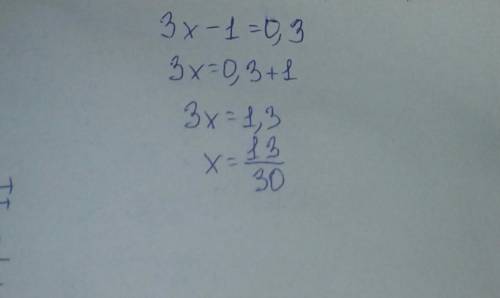 3x-1=0,3
3x=0,3+1
3x=1,3
x=13/30